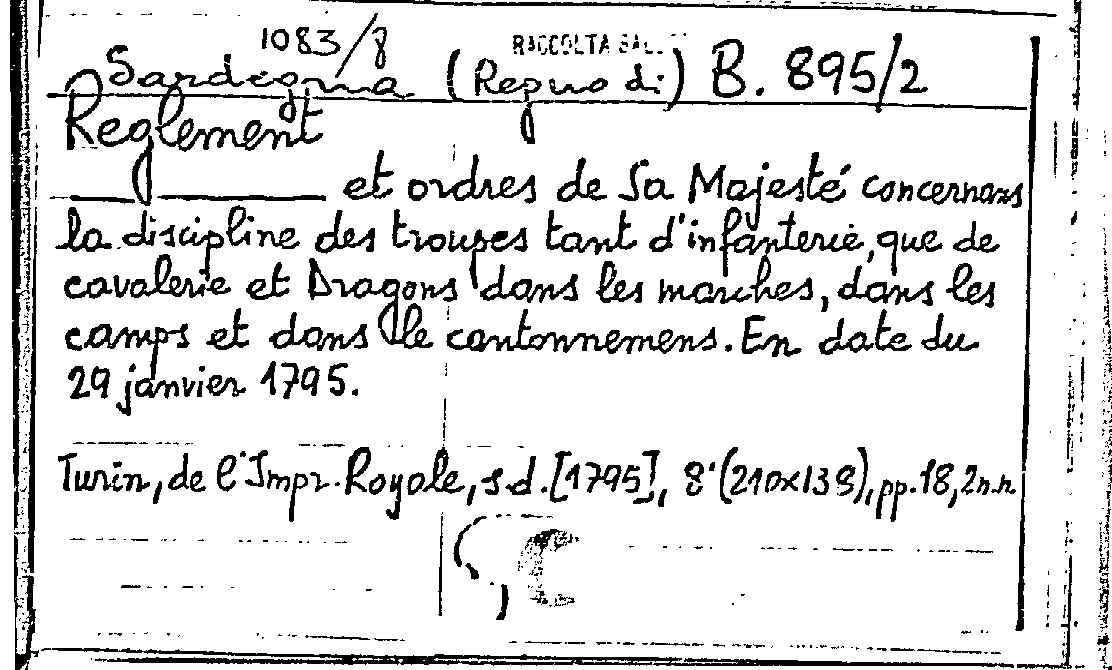 1083/8 RACCOLTA
Sardegna (Regno di) B. 895/2
Reglement
et ordres de Sa Majesté concernans
la discipline des troupes tant d'infanterie, que de
cavalerie et Dragons dans les marches, dans les
camps et dans le cantonnemens. En date du
29 janvier 1795.
Turin, de l'Impr. Royale, s.d. [1795], 8° (210x138), pp. 18, 2n.n.